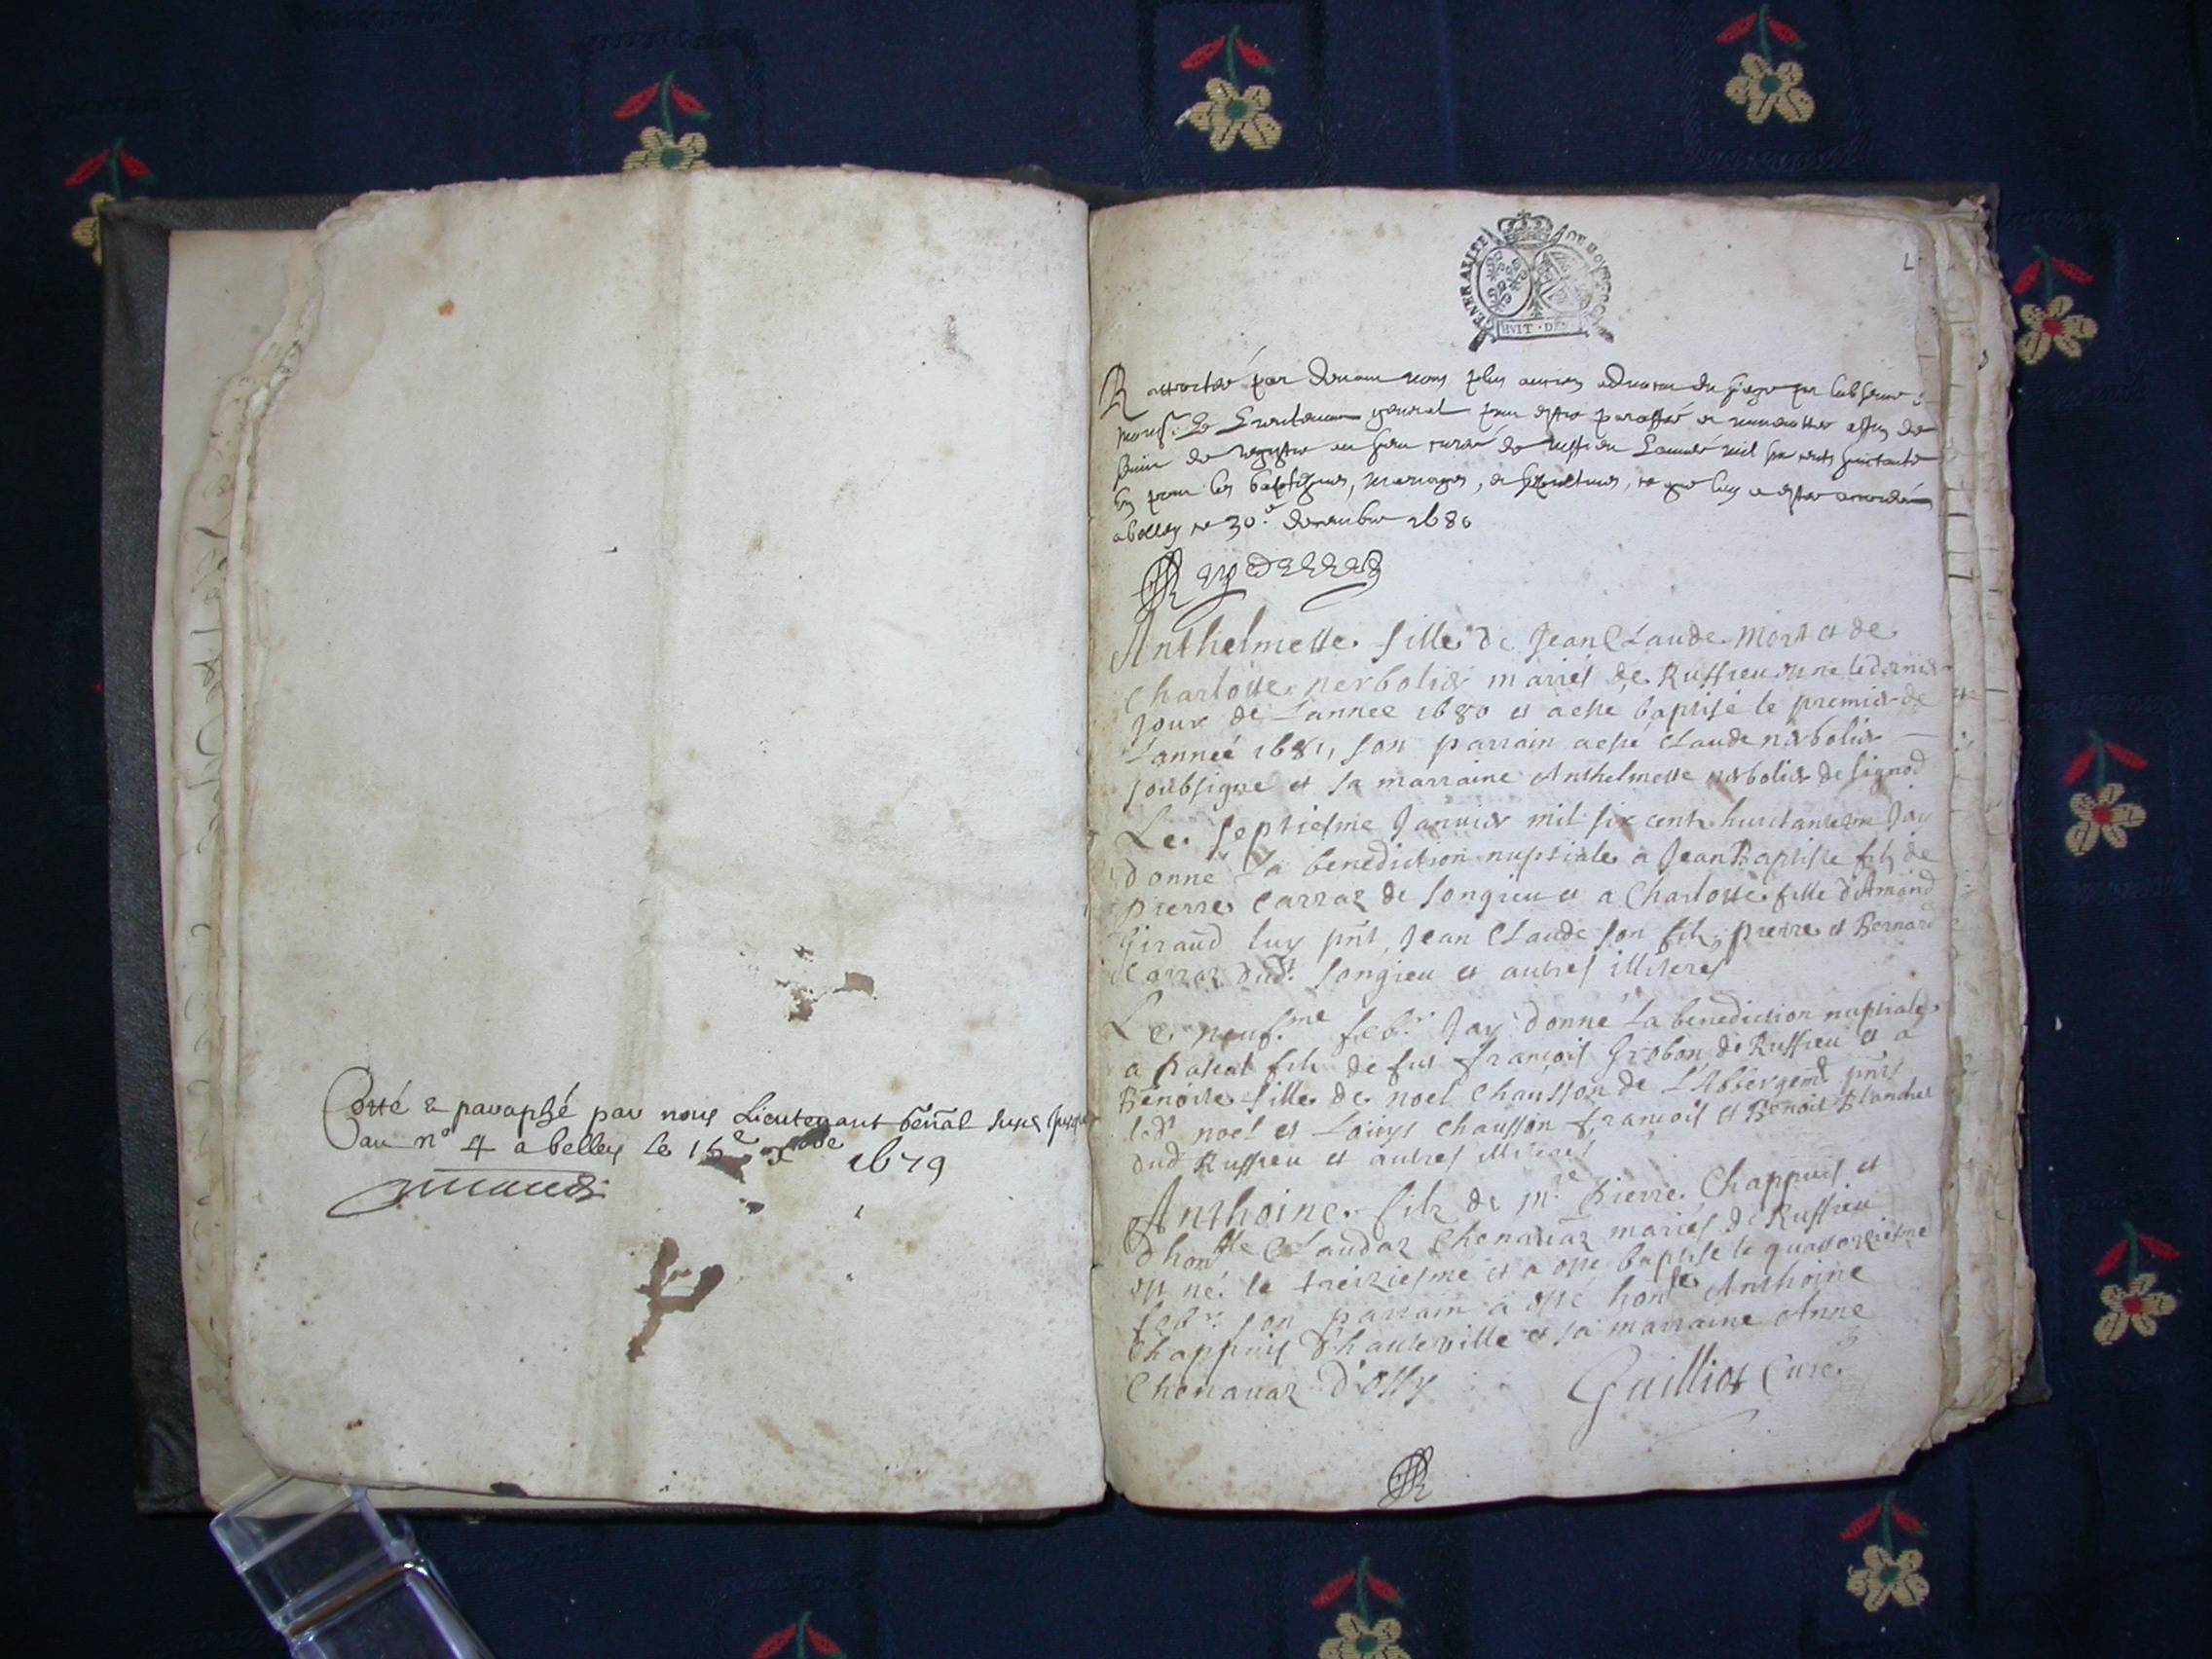 Cotté & paraphé par nous Lieutenant genal
au n° 4 a belley le 15e xbre 1679
GENERALITE DE BOURGOGNE
HVIT · DE
par devant nous plus ancien advocat du siege par labsence
Monsr. Le Lieutenant general pour estre paraffé et
servir de registre au sieur curé de Ruffieu L'année mil six cents huictante
un pour les baptesmes, mariages, et sepultures, ce que luy a estre accordé
a belley ce 30e decembre 1680
Anthelmette fille de Jean Claude Mort et de
Charlotte nerbolier mariés de Ruffieu le dernier
jour de L'année 1680 et a esté baptisé le premier de
L'année 1681, son parrain a esté Claude nerbolier
soubsigné et sa marraine Anthelmette nerbolier de Signod
Le septiesme Janvier mil six cent huictante un Jay
donné La benediction nuptiale a Jean Baptiste fils de
pierre Carraz de Songieu et a Charlotte fille d'Amand
Giraud luy pnt, Jean Claude son fils, pierre et Bernard
Carraz dudt. Songieu et autres illiteres
Le neufme febr. Jay donné La benediction nuptiale
a Pascal fils de fut françois Grobon de Ruffieu et a
Benoite fille de noel Chausson de L'Abbergemt pnts
ledt noel et Louys Chausson françois et Benoit Blanchet
dud Ruffieu et autres illiteres
Anthoine fils de Me Pierre Chappuis et
d'honble Claudaz Chenavaz mariés de Ruffieu
est né le treiziesme et a esté baptisé le quatorziesme
febr. son parrain a esté honle Anthoine
Chappuis d'hauteville et sa marraine Anne
Chenavaz d'Ossy
Guilliot Curé